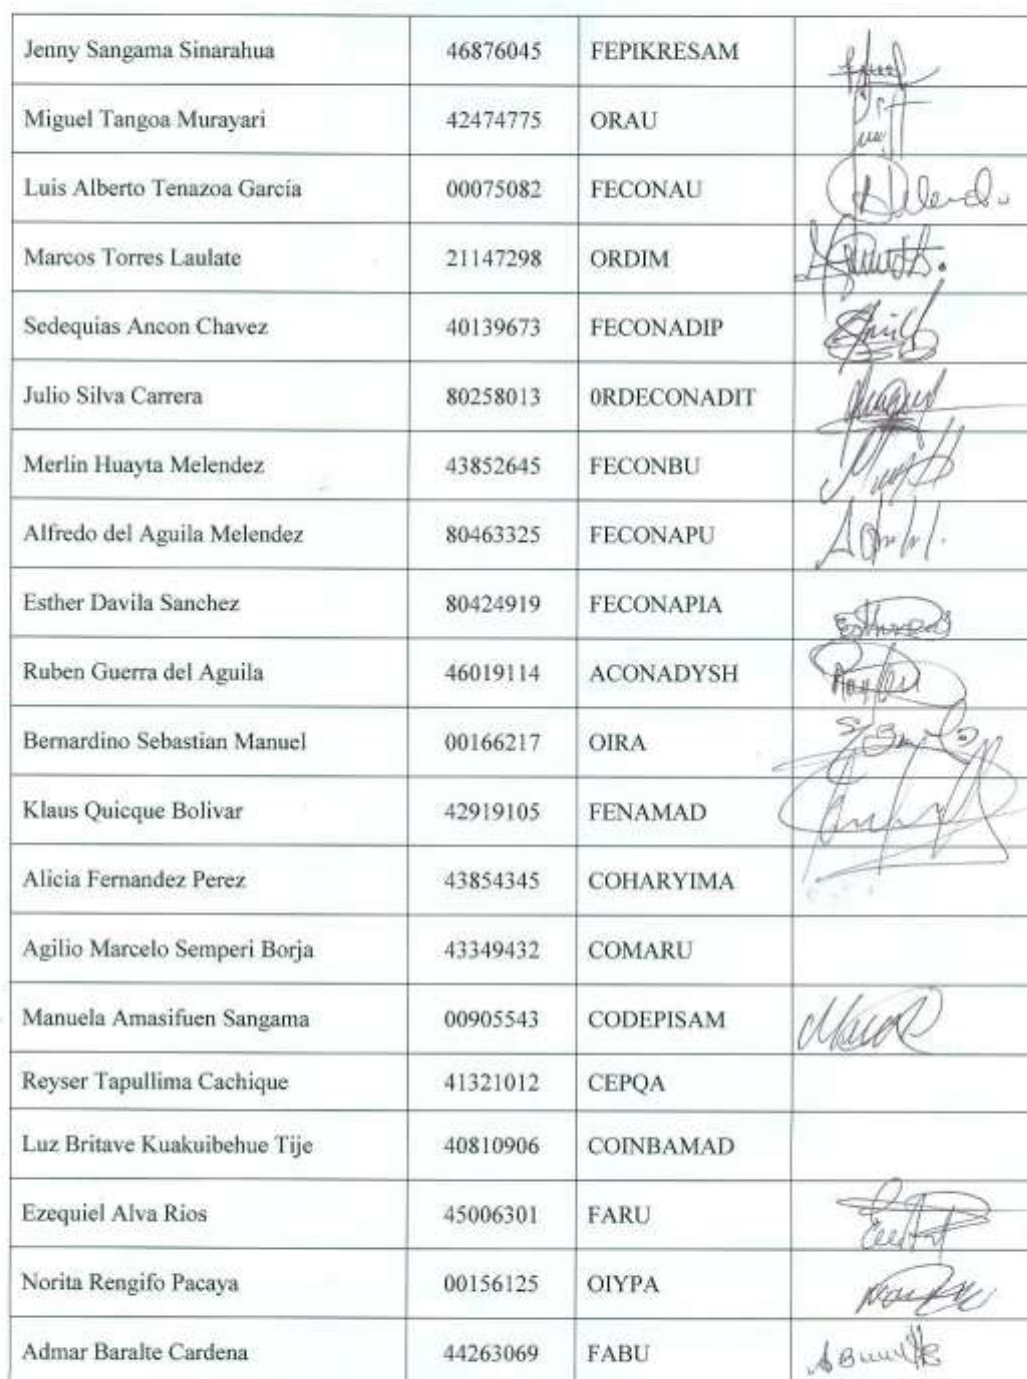 Jenny Sangama Sinarahua 46876045 FEPIKRESAM
Miguel Tangoa Murayari 42474775 ORAU
Luis Alberto Tenazoa García 00075082 FECONAU
Marcos Torres Laulate 21147298 ORDIM
Sedequias Ancon Chavez 40139673 FECONADIP
Julio Silva Carrera 80258013 0RDECONADIT
Merlin Huayta Melendez 43852645 FECONBU
Alfredo del Aguila Melendez 80463325 FECONAPU
Esther Davila Sanchez 80424919 FECONAPIA
Ruben Guerra del Aguila 46019114 ACONADYSH
Bernardino Sebastian Manuel 00166217 OIRA
Klaus Quicque Bolivar 42919105 FENAMAD
Alicia Fernandez Perez 43854345 COHARYIMA
Agilio Marcelo Semperi Borja 43349432 COMARU
Manuela Amasifuen Sangama 00905543 CODEPISAM
Reyser Tapullima Cachique 41321012 CEPQA
Luz Britave Kuakuibehue Tije 40810906 COINBAMAD
Ezequiel Alva Rios 45006301 FARU
Norita Rengifo Pacaya 00156125 OIYPA
Admar Baralte Cardena 44263069 FABU